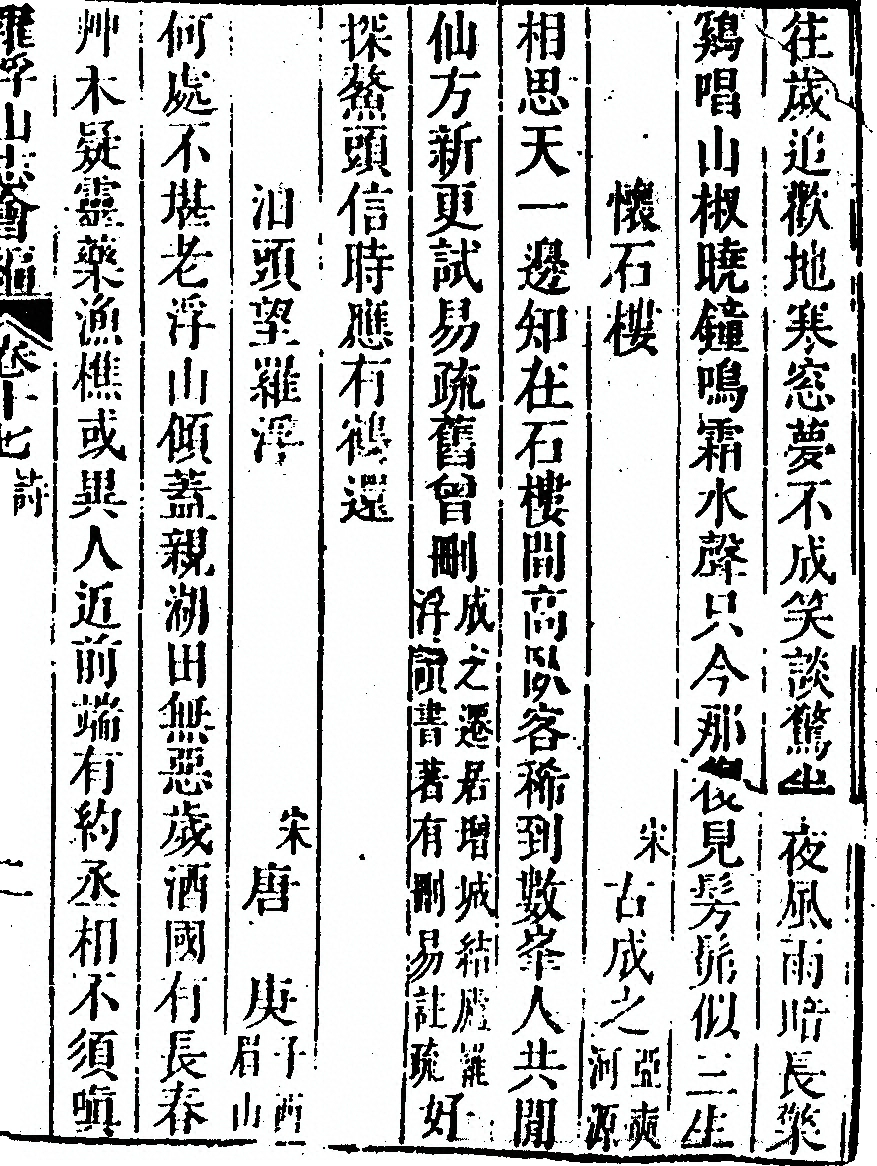 往歲追歡地寒窓夢不成笑談驚坐夜風雨暗長檠
鷄唱山椒曉鐘鳴霜水聲只今那復見髣髴似三生
懷石樓 宋古成之亞奭河源
相思天一邊知在石樓間高臥客稀到數峯人共閒
仙方新更試易疏舊曾刪成之遷居增城結廬羅浮讀書著有刪易註疏好
探鰲頭信時應有鶴還
泊頭望羅浮 宋唐庚子西眉山
何處不堪老浮山傾蓋親湖田無惡歲酒國有長春
艸木疑靈藥漁樵或異人近前端有約丞相不須嗔
羅浮山志會編 卷十七 詩 二